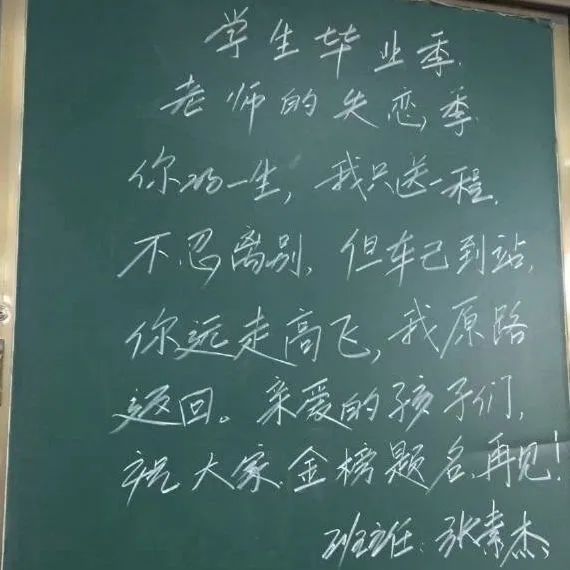 学生毕业季
老师的失恋季
你的一生，我只送一程，
不忍离别，但车已到站，
你远走高飞，我原路
返回。亲爱的孩子们，
祝大家金榜题名，再见！
班主任：张素杰